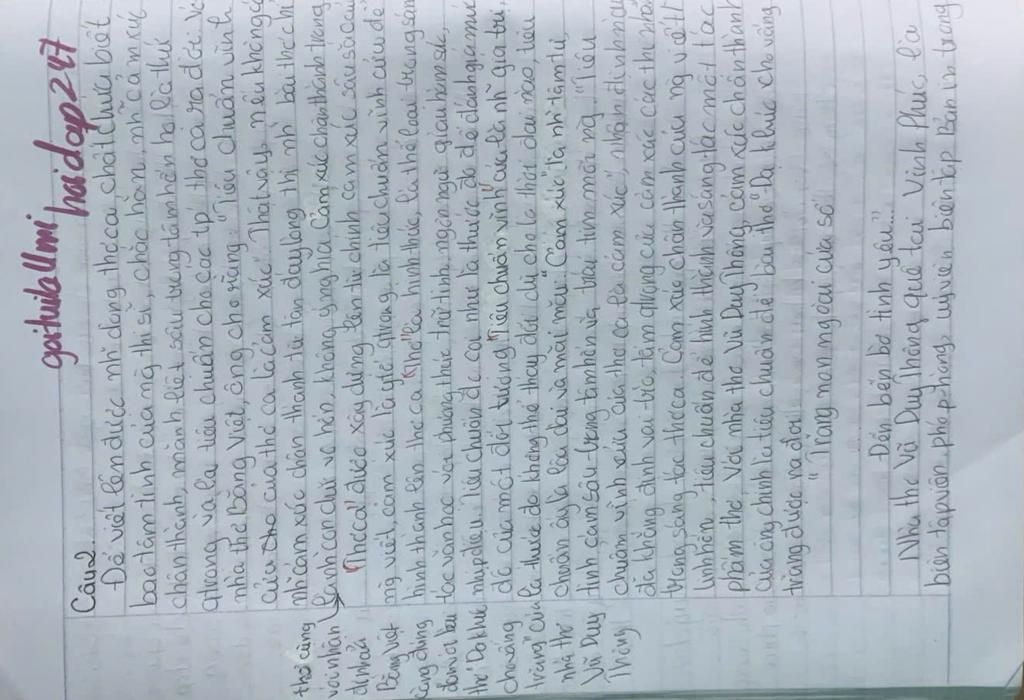 gaituiballmi hoidap247
Câu 2.
Để viết lên được nh~ dòng thơ ca, chất chứa biết
bao tâm tình của ng~ thi sĩ, chắc hẳn, nh~ cảm xúc
chân thành, mãnh liệt sâu trong tâm hồn họ là thứ
qtrọng và là tiêu chuẩn cho các tp thơ ca ra đời. Và
nhà thơ Bằng Việt, ông cho rằng "Tiêu chuẩn vĩnh
cửu của thơ ca là cảm xúc". Thật vậy, nếu không có
nh~ cảm xúc chân thành từ tận đáy lòng thì nh~ bài thơ chỉ
là nh~ con chữ vô hồn, không ý nghĩa. Cảm xúc chân thành trong
thơ cũng
với nhận
định của
Bằng Việt
cũng đúng
đam với bài
thơ "Dạ khúc
cho vầng
trăng" của
nhà thơ
Vũ Duy
Thông
"Thơ ca" được xây dựng lên từ chính cảm xúc sâu sắc của
ng viết, cảm xúc là yếu qtrọng, là tiêu chuẩn vĩnh cửu để
hình thành lên thơ ca. "Thơ" là hình thức, là thể loại trong sáng
tác văn học với phương thức trữ tình, ngôn ngữ giàu hình ảnh,
nhịp điệu. Tiêu chuẩn đc coi như là thước đo để đánh giá mức
độ của một đối tượng. "Tiêu chuẩn vĩnh cửu" tức là nh~ giá trị,
là thước đo không thể thay đổi dù cho là thời đại nào, tiêu
chuẩn ấy là lâu dài và mãi mãi. "Cảm xúc" là nh~ tâm tư,
tình cảm sâu trong tâm hồn và trái tim mỗi ng. "Tiêu
chuẩn vĩnh cửu của thơ ca là cảm xúc", nhận định này
đã khẳng định vai trò, tầm qtrọng của cảm xúc các thi nhân
trong sáng tác thơ ca. Cảm xúc chân thành của ng vết
là tiêu chuẩn để hình thành và sáng tác một tác
phẩm thơ. Với nhà thơ Vũ Duy Thông, cảm xúc chân thành
của ông chính là tiêu chuẩn để bài thơ "Dạ khúc cho vầng
trăng" được ra đời.
"Trăng non ngoài cửa sổ
Đến bến bờ tình yêu..."
Nhà thơ Vũ Duy Thông quê tại Vĩnh Phúc, là
biên tập viên, phó phòng, uỷ viên biên tập Bản tin trong